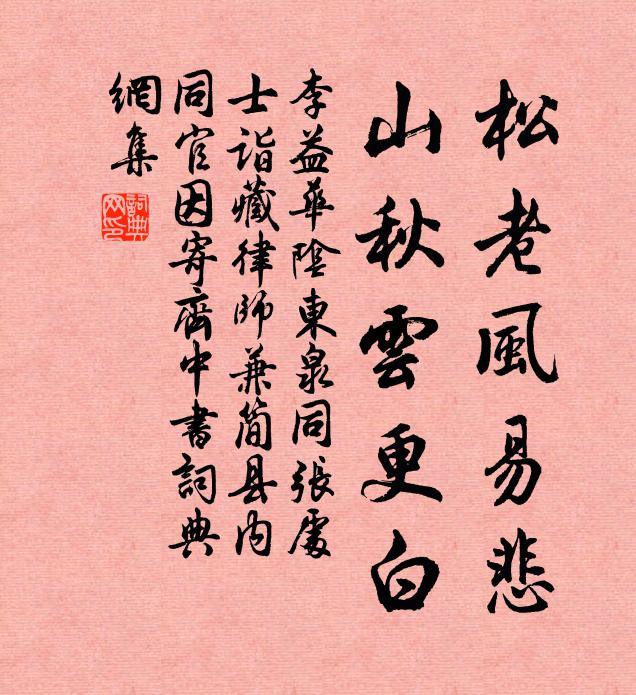 松老風易悲
山秋雲更白
李益華陰東泉同張處
士詣藏律師兼簡县内
同官因寄齊中書詞典
網集
詞典
网印